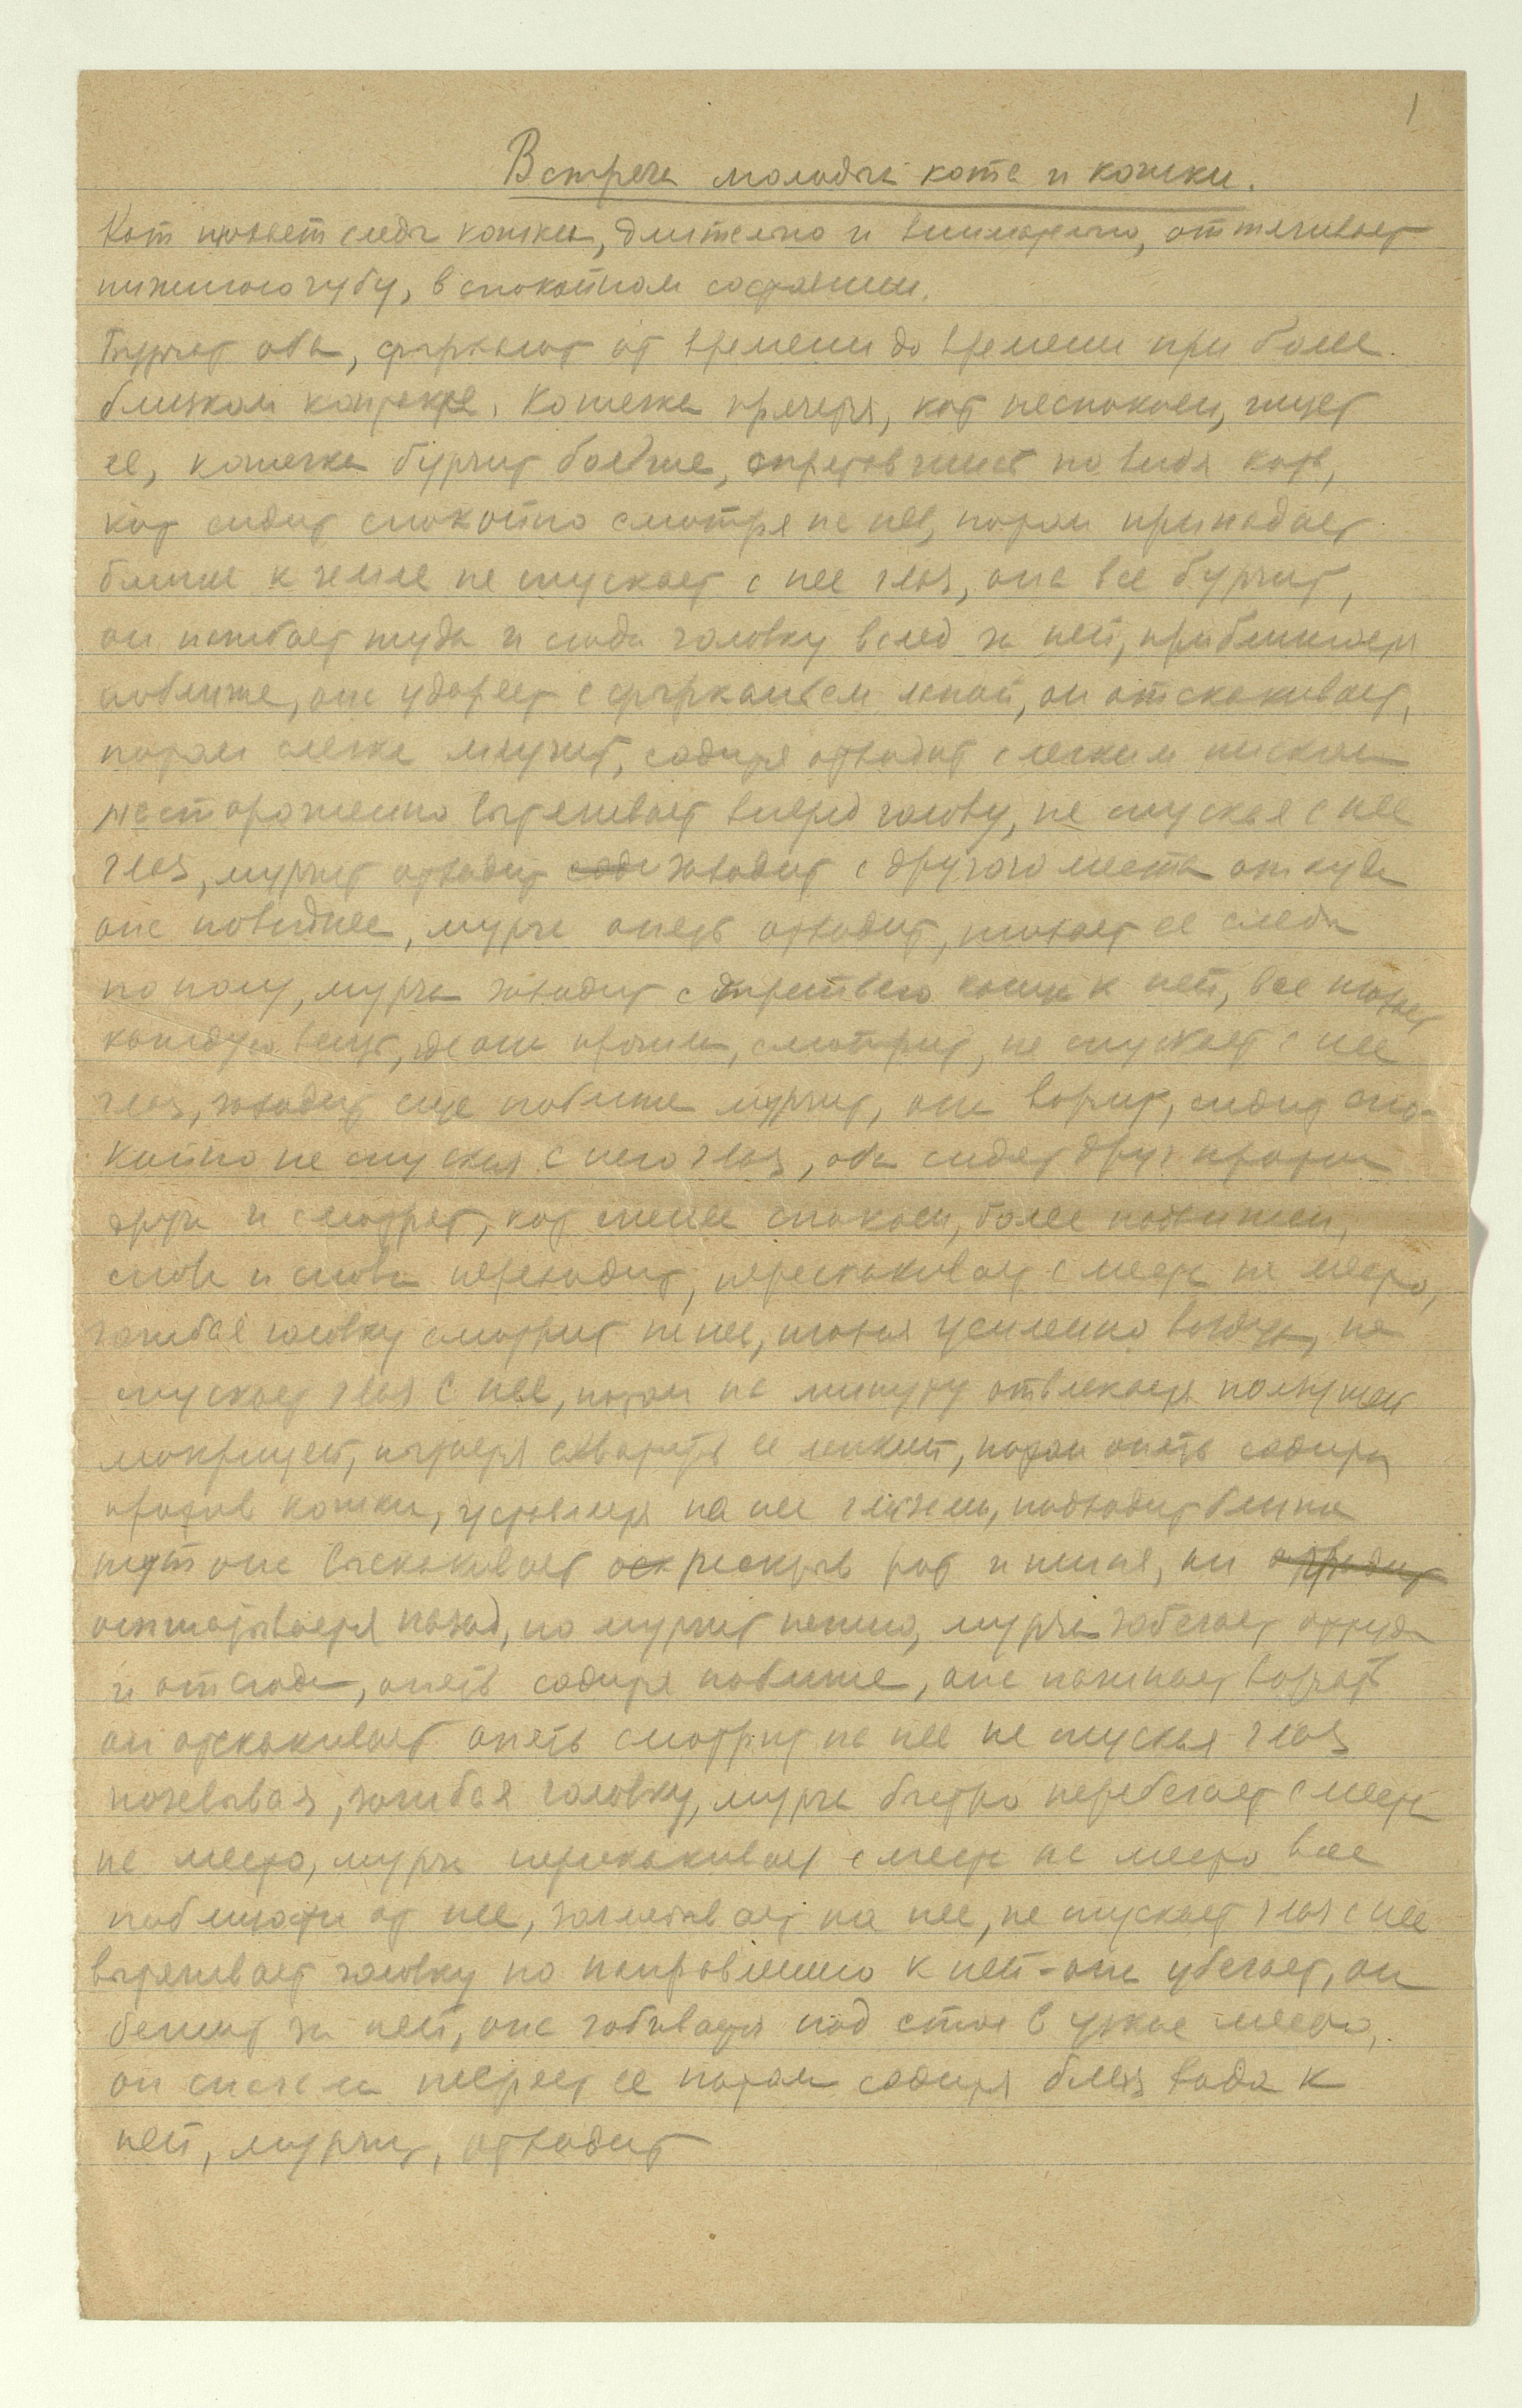 1
Встреча молодых кота и кошки.
Кот нюхает следы кошки, длительно и внимательно, оттягивает
нижнюю губу, в спокойном состоянии.
Бурчат оба, фыркают от времени до времени при более
близком контакте. Кошечка прячется, кот неспокоен, ищет
ее, кошечка бурчит больше, спрятавшись не видя кота,
кот сидит спокойно смотря на нее, потом припадает
ближе к земле не спускает с нее глаз, она все бурчит,
он нагибает туда и сюда головку вслед за ней, приближается
поближе, она ударяет с фырканьем лапой, он отскакивает,
потом слегка мяучит, садится отходит с легким писком
настороженно вытягивает вперед голову, не спуская с нее
глаз, мурчит отходит заходит с другого места откуда
она повиднее, мурча опять отходит, нюхает ее следы
по полу, мурча заходит с противого конца к ней, все нюхает
каждую вещь, где она прошла, смотрит, не спускает с нее
глаз, заходит еще поближе мурчит, она ворчит, сидит спо-
койно не спуская с него глаз, оба сидят друг против
друга и смотрят, кот менее спокоен, более подвижен,
снова и снова переходит, перескакивает с места на место,
загибая головку смотрит на нее, нюхая усиленно воздух, не
спускает глаз с нее, потом на минуту отвлекается ползущей
мокрицей, пытается схватить ее лапкой, потом опять садится
против кошки, уставляется на нее глазами, подходит ближе
тут она выскакивает раскрыв рот и шипя, он отходит
отшатывается назад, но мурчит нежно, мурча забегает оттуда
и отсюда, опять садится поближе, она начинает ворчать
он отскакивает опять смотрит на нее не спуская глаз
позевывая, загибая головку, мурча быстро перебегает с места
на место, мурча перескакивает с места на место все
поблизости от нее, поглядывает на нее, не спускает глаз с нее
вытягивает головку по направлению к ней - она убегает, он
бежит за ней, она забивается под стол в узкое место,
он сначала теряет ее потом садится близ входа к
ней, мурчит, отходит